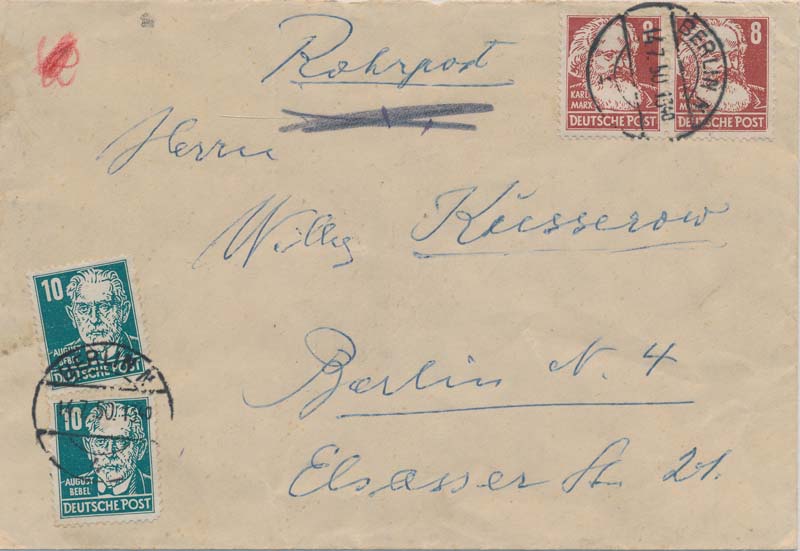 Rohrpost
8
KARL MARX
DEUTSCHE POST
8
DEUTSCHE POST
BERLIN N
14.7.50
Herrn
Willy Küsserow
Berlin N. 4
Elsasser Str. 21.
10
AUGUST BEBEL
DEUTSCHE POST
BERLIN N
10
AUGUST BEBEL
DEUTSCHE POST